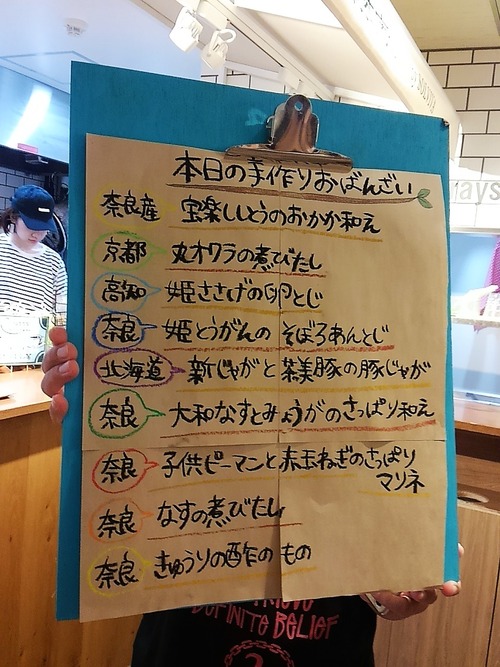 本日の手作りおばんざい
奈良産 宝楽ししとうのおかか和え
京都 丸オクラの煮びたし
高知 姫ささげの卵とじ
奈良 姫とうがんの そぼろあんとじ
北海道 新じゃがと茶美豚の豚じゃが
奈良 大和なすとみょうがのさっぱり和え
奈良 子供ピーマンと赤玉ねぎのさっぱり
マリネ
奈良 なすの煮びたし
奈良 きゅうりの酢のもの
DEFINITE BELIEF